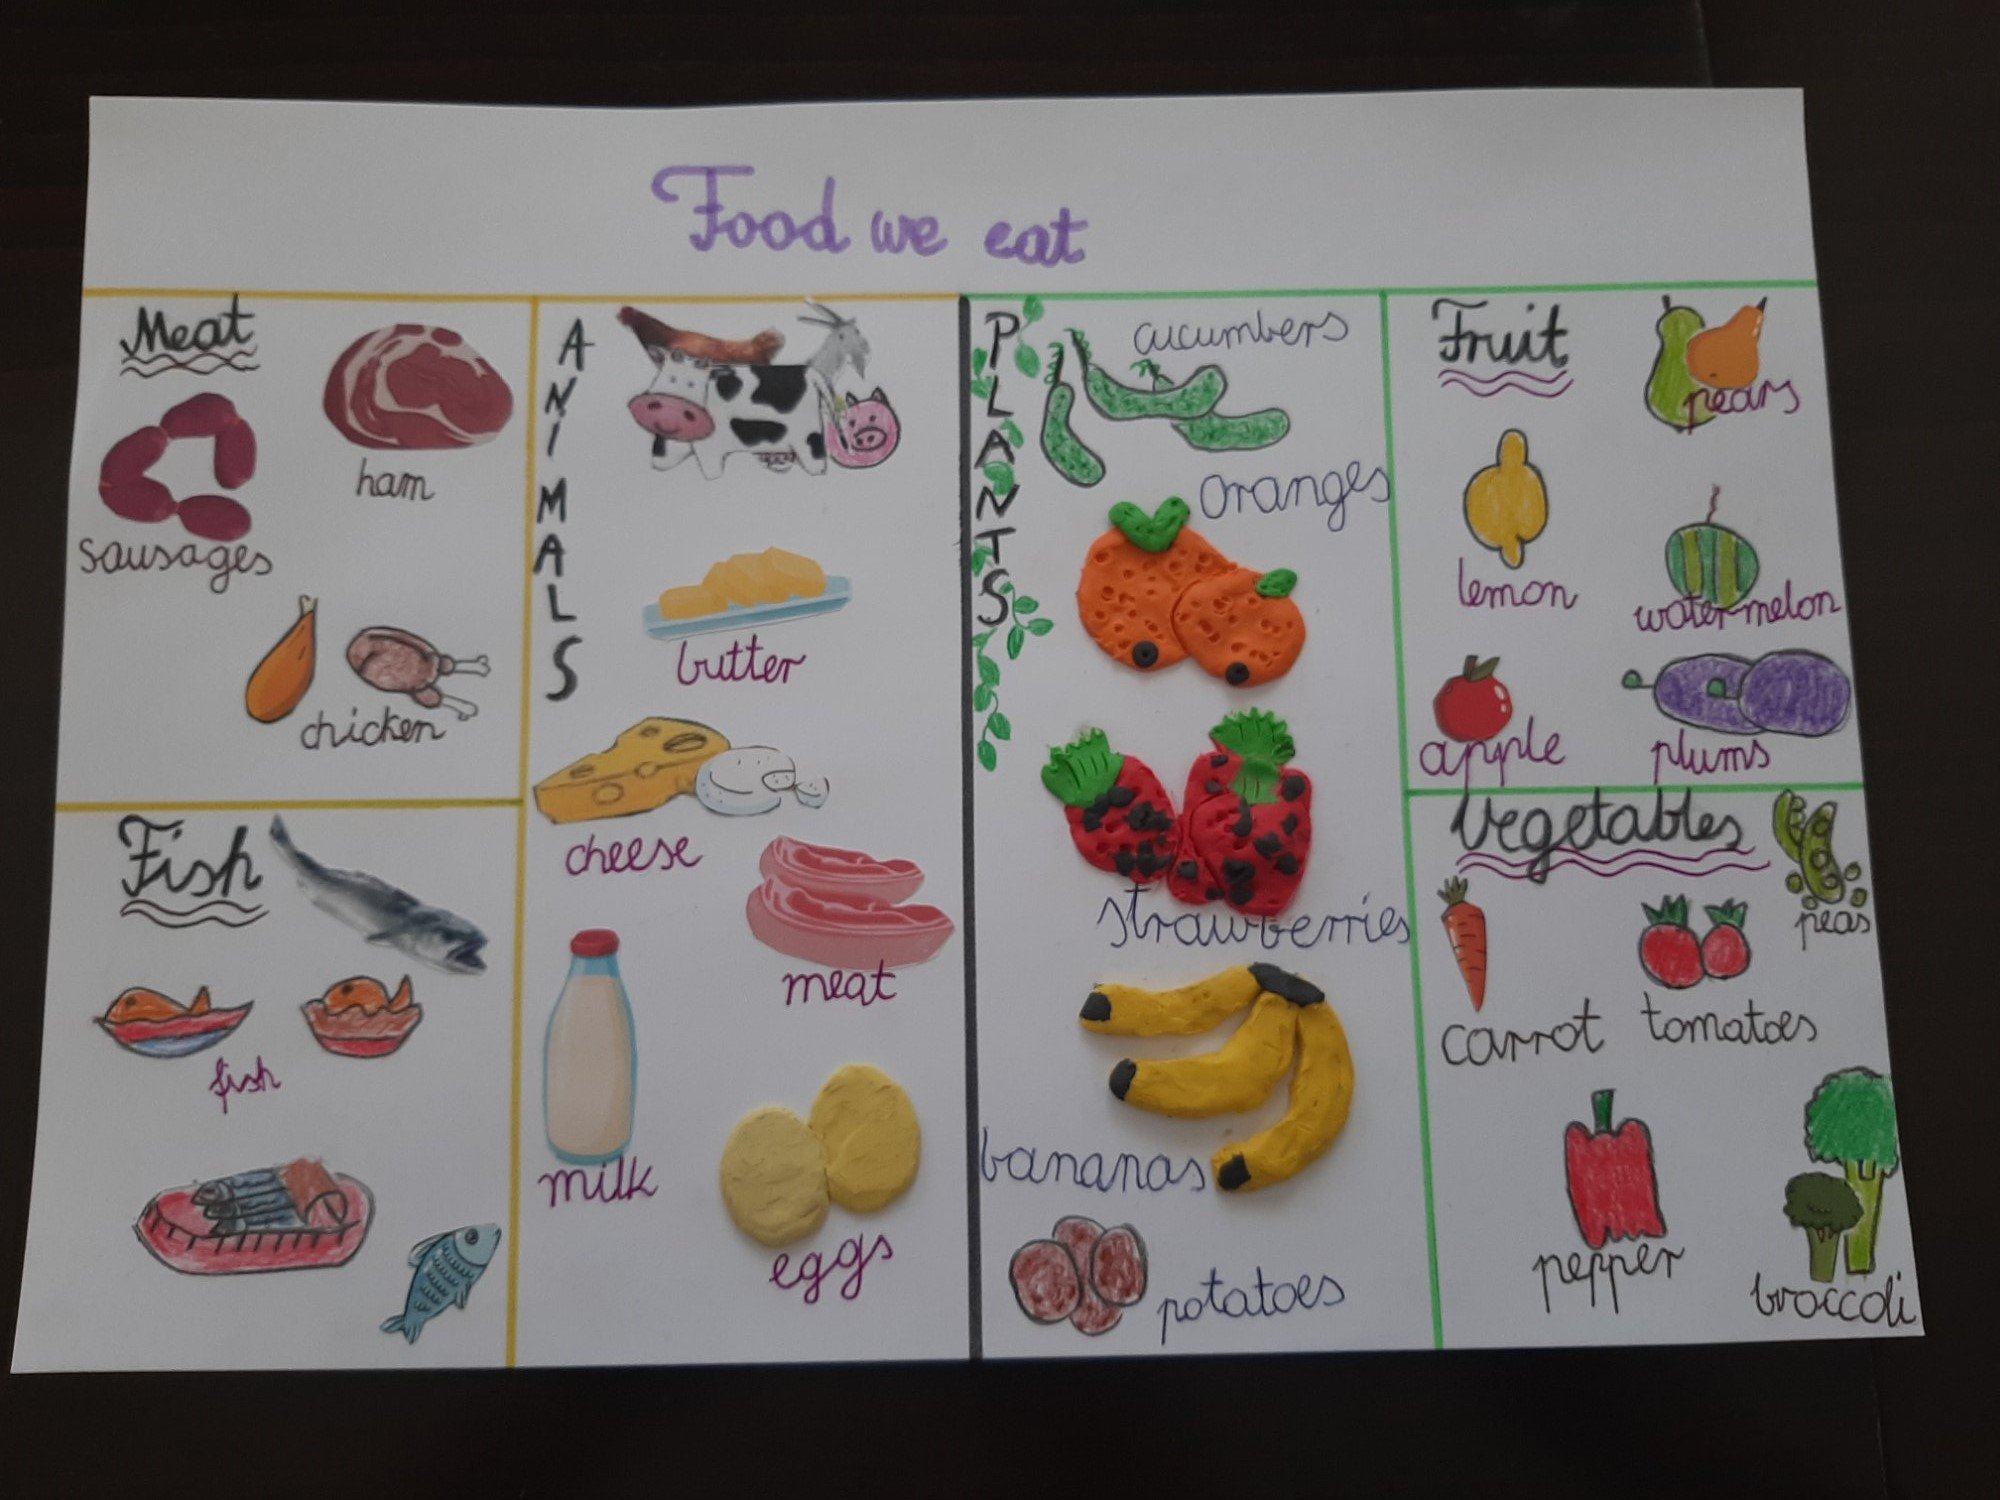 Food we eat
Meat
ham
sausages
chicken
Fish
fish
ANIMALS
butter
cheese
meat
milk
eggs
PLANTS
cucumbers
oranges
strawberries
bananas
potatoes
Fruit
pears
lemon
watermelon
apple
plums
Vegetables
peas
carrot
tomatoes
pepper
broccoli